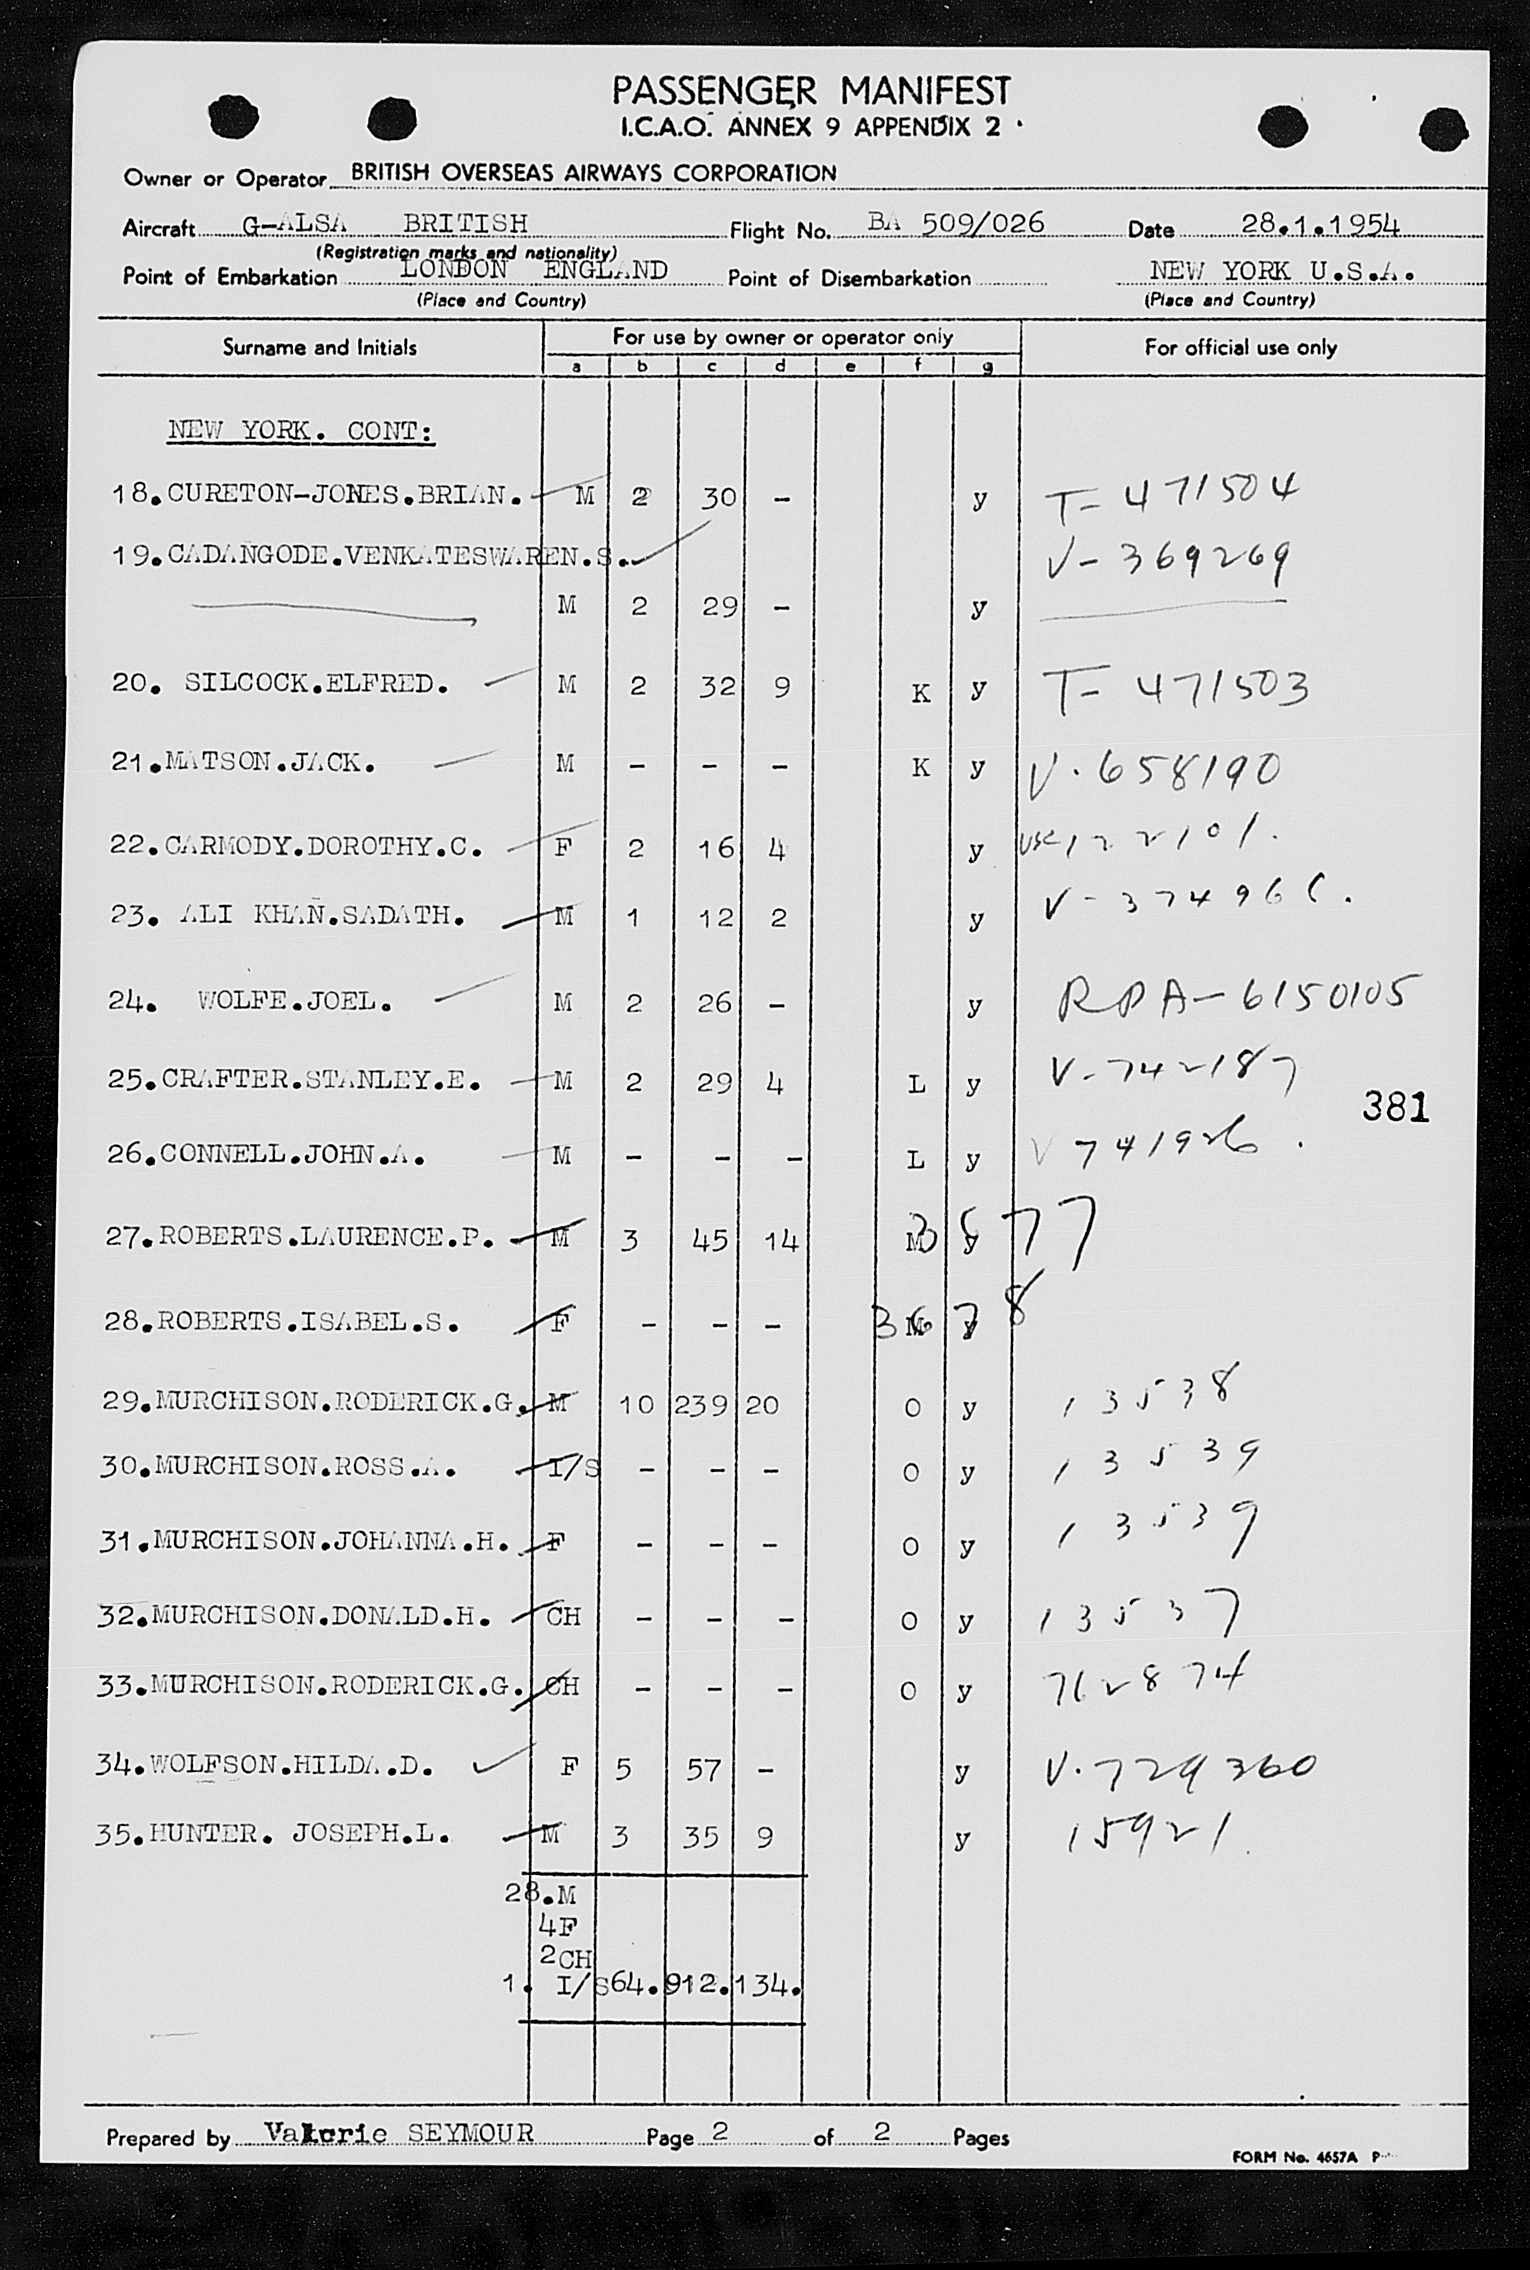 PASSENGER MANIFEST
I.C.A.O. ANNEX 9 APPENDIX 2
Owner or Operator BRITISH OVERSEAS AIRWAYS CORPORATION
Aircraft G-ALSA BRITISH Flight No. BA 509/026 Date 28.1.1954
(Registration marks and nationality)
Point of Embarkation LONDON ENGLAND Point of Disembarkation NEW YORK U.S.A.
(Place and Country) (Place and Country)
Surname and Initials For use by owner or operator only For official use only
a b c d e f g
NEW YORK. CONT:
18.CURETON-JONES.BRIAN. M 2 30 - y T- 471504
19.CADANGODE.VENKATESWAREN.S. V- 369269
M 2 29 - y
20. SILCOCK.ELFRED. M 2 32 9 K y T- 471503
21.MATSON.JACK. M - - - K y V. 658190
22.CARMODY.DOROTHY.C. F 2 16 4 y USC 122101.
23. ALI KHAN.SADATH. M 1 12 2 y V- 374966.
24. WOLFE.JOEL. M 2 26 - y RPA- 6150105
25.CRAFTER.STANLEY.E. M 2 29 4 L y V- 742187
381
26.CONNELL.JOHN.A. M - - - L y V 741926.
27.ROBERTS.LAURENCE.P. M 3 45 14 M y
28.ROBERTS.ISABEL.S. F - - - M y 3678
29.MURCHISON.RODERICK.G. M 10 239 20 O y 13538
30.MURCHISON.ROSS.A. I/S - - - O y 13539
31.MURCHISON.JOHANNA.H. F - - - O y 13539
32.MURCHISON.DONALD.H. CH - - - O y 13537
33.MURCHISON.RODERICK.G. CH - - - O y
34.WOLFSON.HILDA.D. F 5 57 - y V. 729360
35.HUNTER. JOSEPH.L. M 3 35 9 y 15921
28.M
4F
2CH
1. I/S64.912.134.
Prepared by Valerie SEYMOUR Page 2 of 2 Pages
FORM No. 4657A P